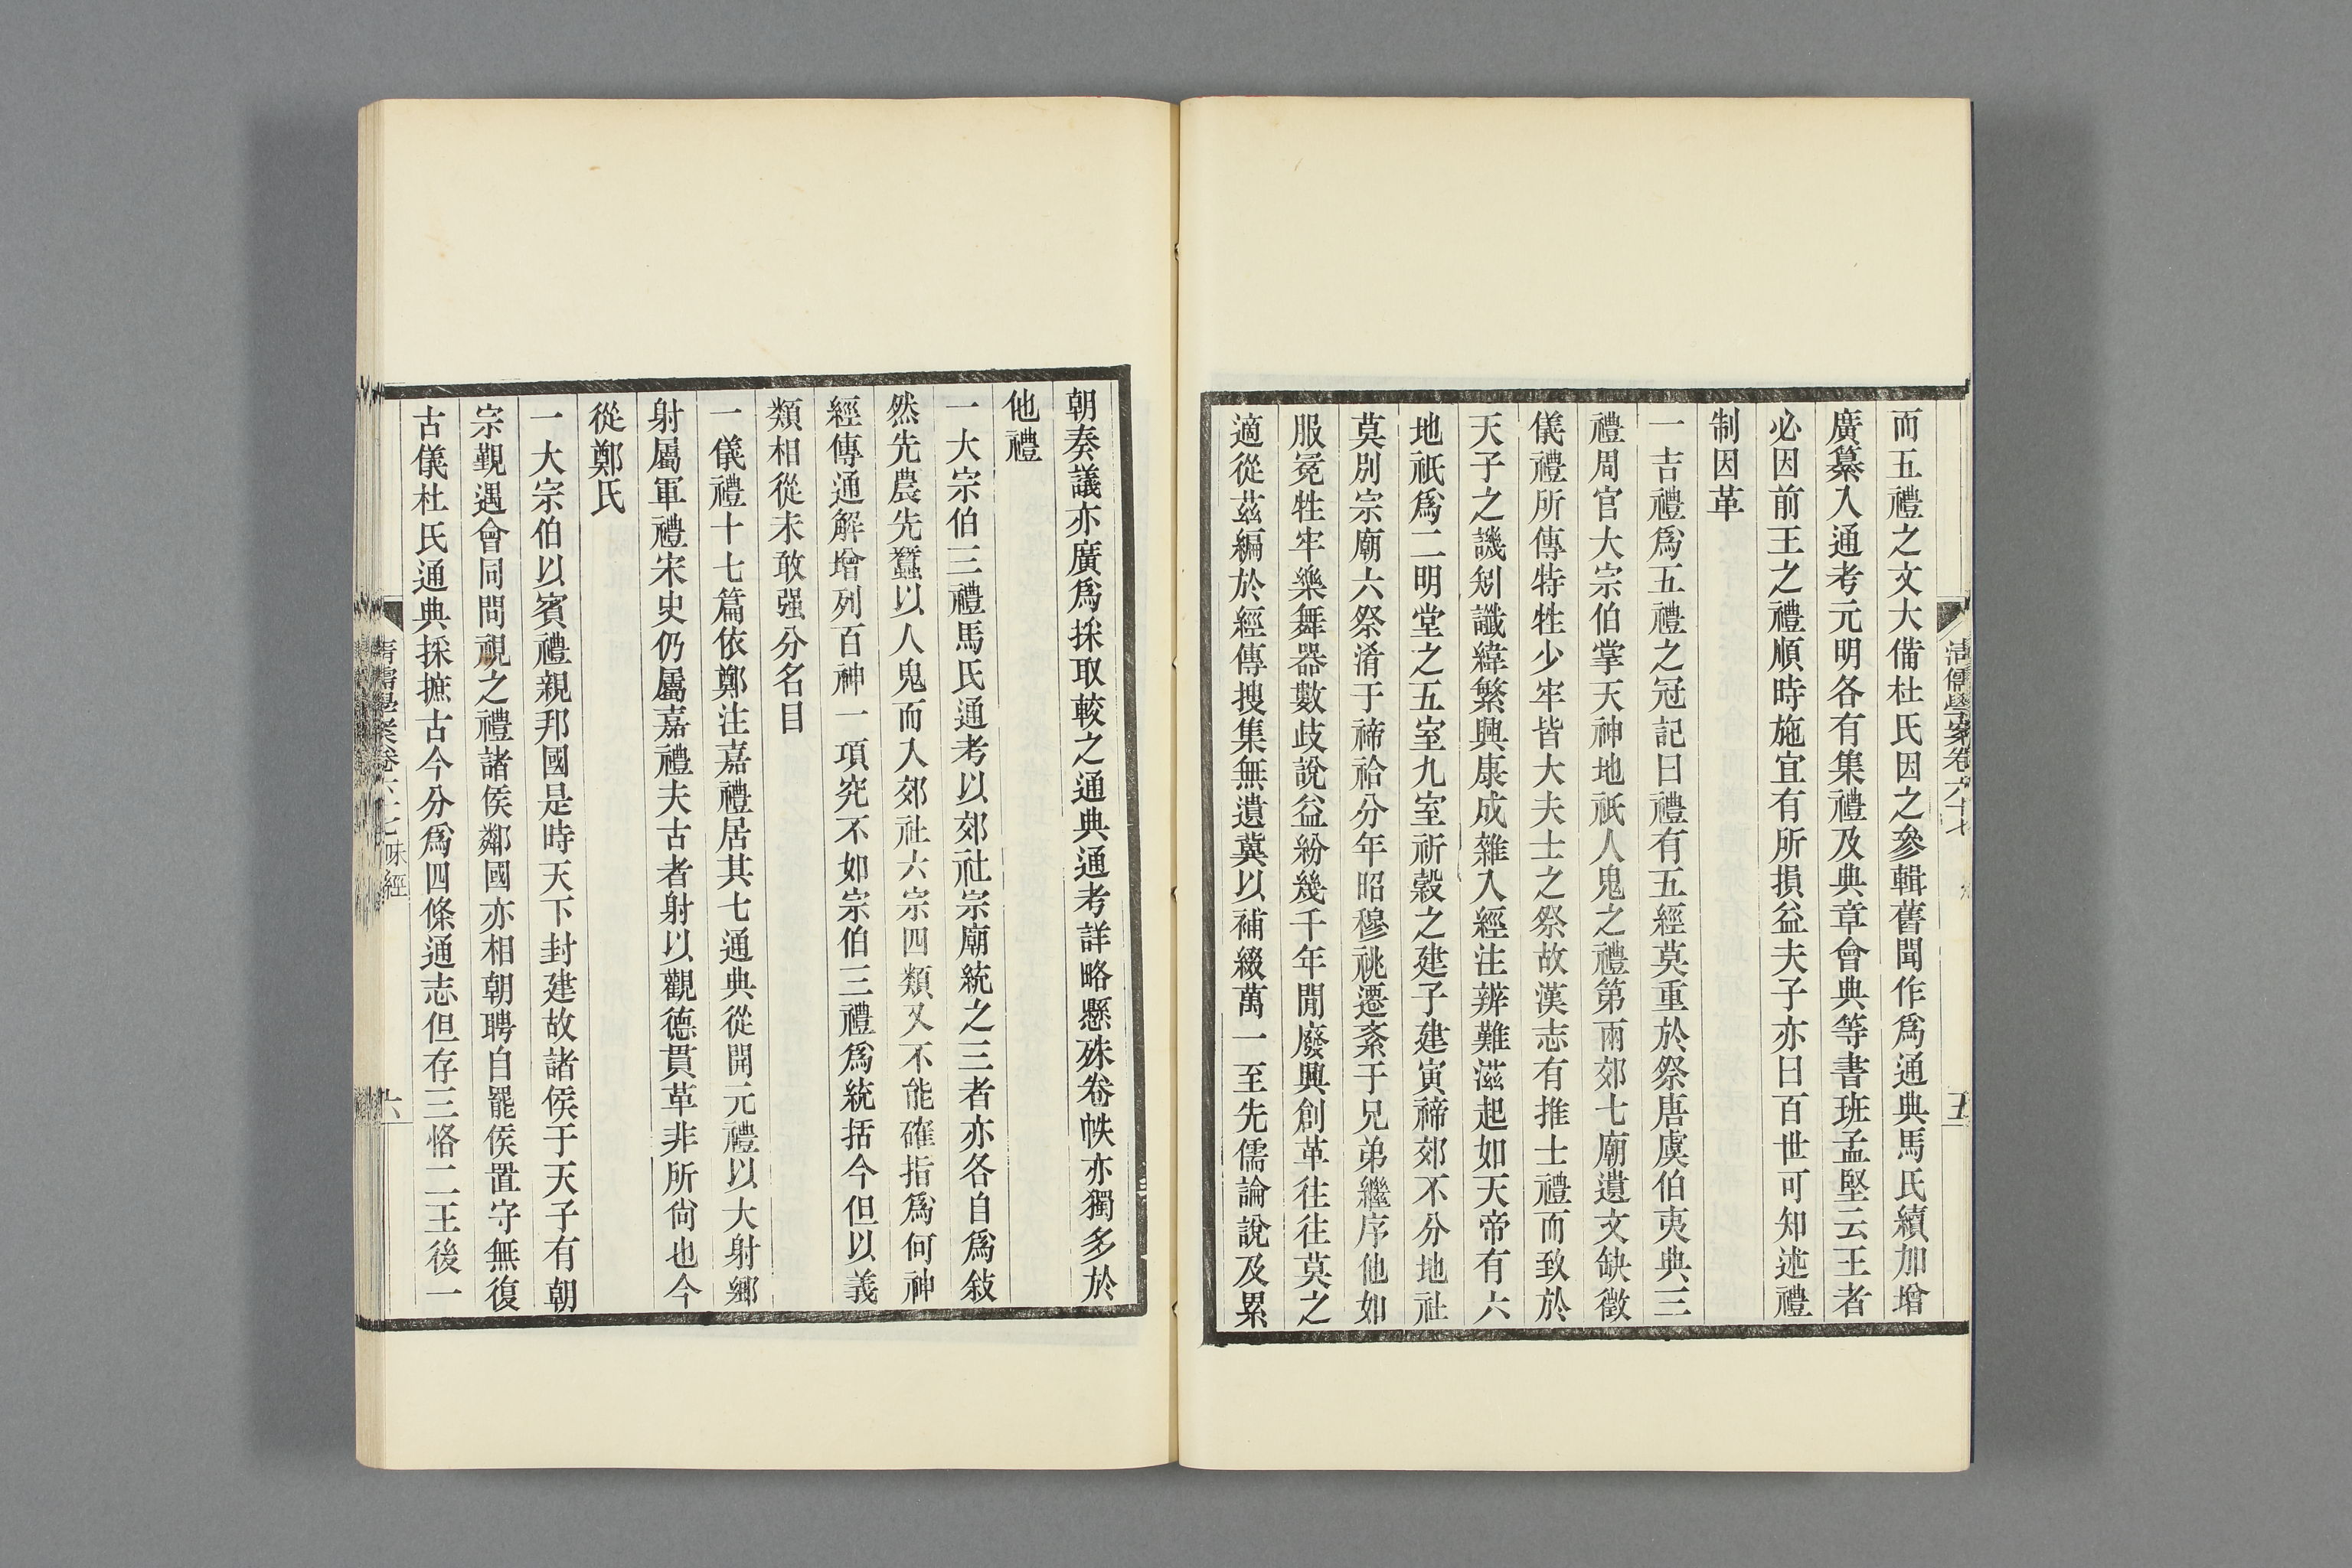 而五禮之文大備杜氏因之參輯舊聞作爲通典馬氏續加增
廣纂入通考元明各有集禮及典章會典等書班孟堅云王者
必因前王之禮順時施宜有所損益夫子亦曰百世可知述禮
制因革
一吉禮爲五禮之冠記曰禮有五經莫重於祭唐虞伯夷典三
禮周官大宗伯掌天神地祇人鬼之禮第兩郊七廟遺文缺徵
儀禮所傳特牲少牢皆大夫士之祭故漢志有推士禮而致於
天子之譏矧讖緯繁興康成雜入經注辨難滋起如天帝有六
地祇爲二明堂之五室九室祈穀之建子建寅禘郊不分地社
莫別宗廟六祭淆于禘祫分年昭穆祧遷紊于兄弟繼序他如
服冕牲牢樂舞器數歧說益紛幾千年閒廢興創革往往莫之
適從茲編於經傳搜集無遺冀以補綴萬一至先儒論說及累
清儒學案卷六十七
五
朝奏議亦廣爲採取較之通典通考詳略懸殊卷帙亦獨多於
他禮
一大宗伯三禮馬氏通考以郊社宗廟統之三者亦各自爲敍
然先農先蠶以人鬼而入郊社六宗四類又不能確指爲何神
經傳通解增列百神一項究不如宗伯三禮爲統括今但以義
類相從未敢强分名目
一儀禮十七篇依鄭注嘉禮居其七通典從開元禮以大射鄉
射屬軍禮宋史仍屬嘉禮夫古者射以觀德貫革非所尙也今
從鄭氏
一大宗伯以賓禮親邦國是時天下封建故諸侯于天子有朝
宗覲遇會同問視之禮諸侯鄰國亦相朝聘自罷侯置守無復
古儀杜氏通典採摭古今分爲四條通志但存三恪二王後一
清儒學案卷六十七 味經
六